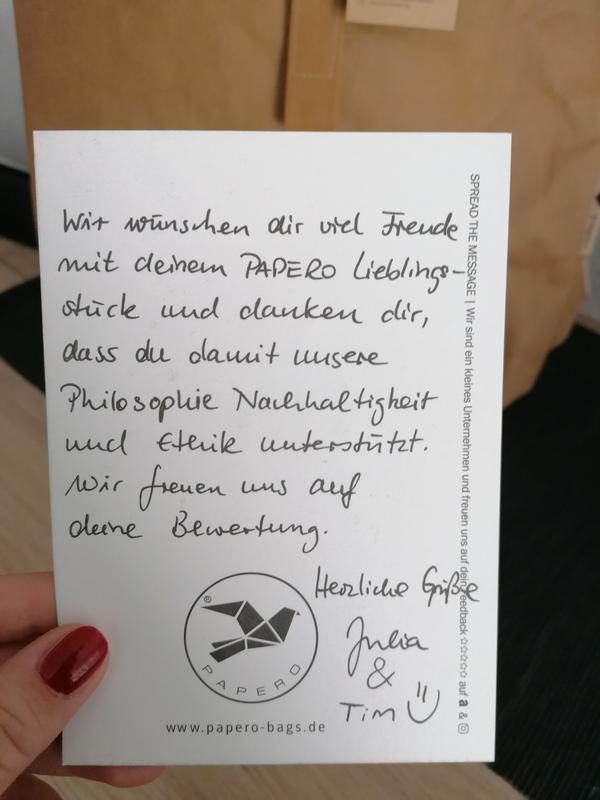 Wir wünschen dir viel Freude
mit deinem PAPERO Lieblings-
stück und danken dir,
dass du damit unsere
Philosophie Nachhaltigkeit
und Ethik unterstützt.
Wir freuen uns auf
deine Bewertung.
Herzliche Grüße
Julia
&
Tim
®
PAPERO
www.papero-bags.de
SPREAD THE MESSAGE | Wir sind ein kleines Unternehmen und freuen uns auf dein Feedback ☆☆☆☆☆ auf a &